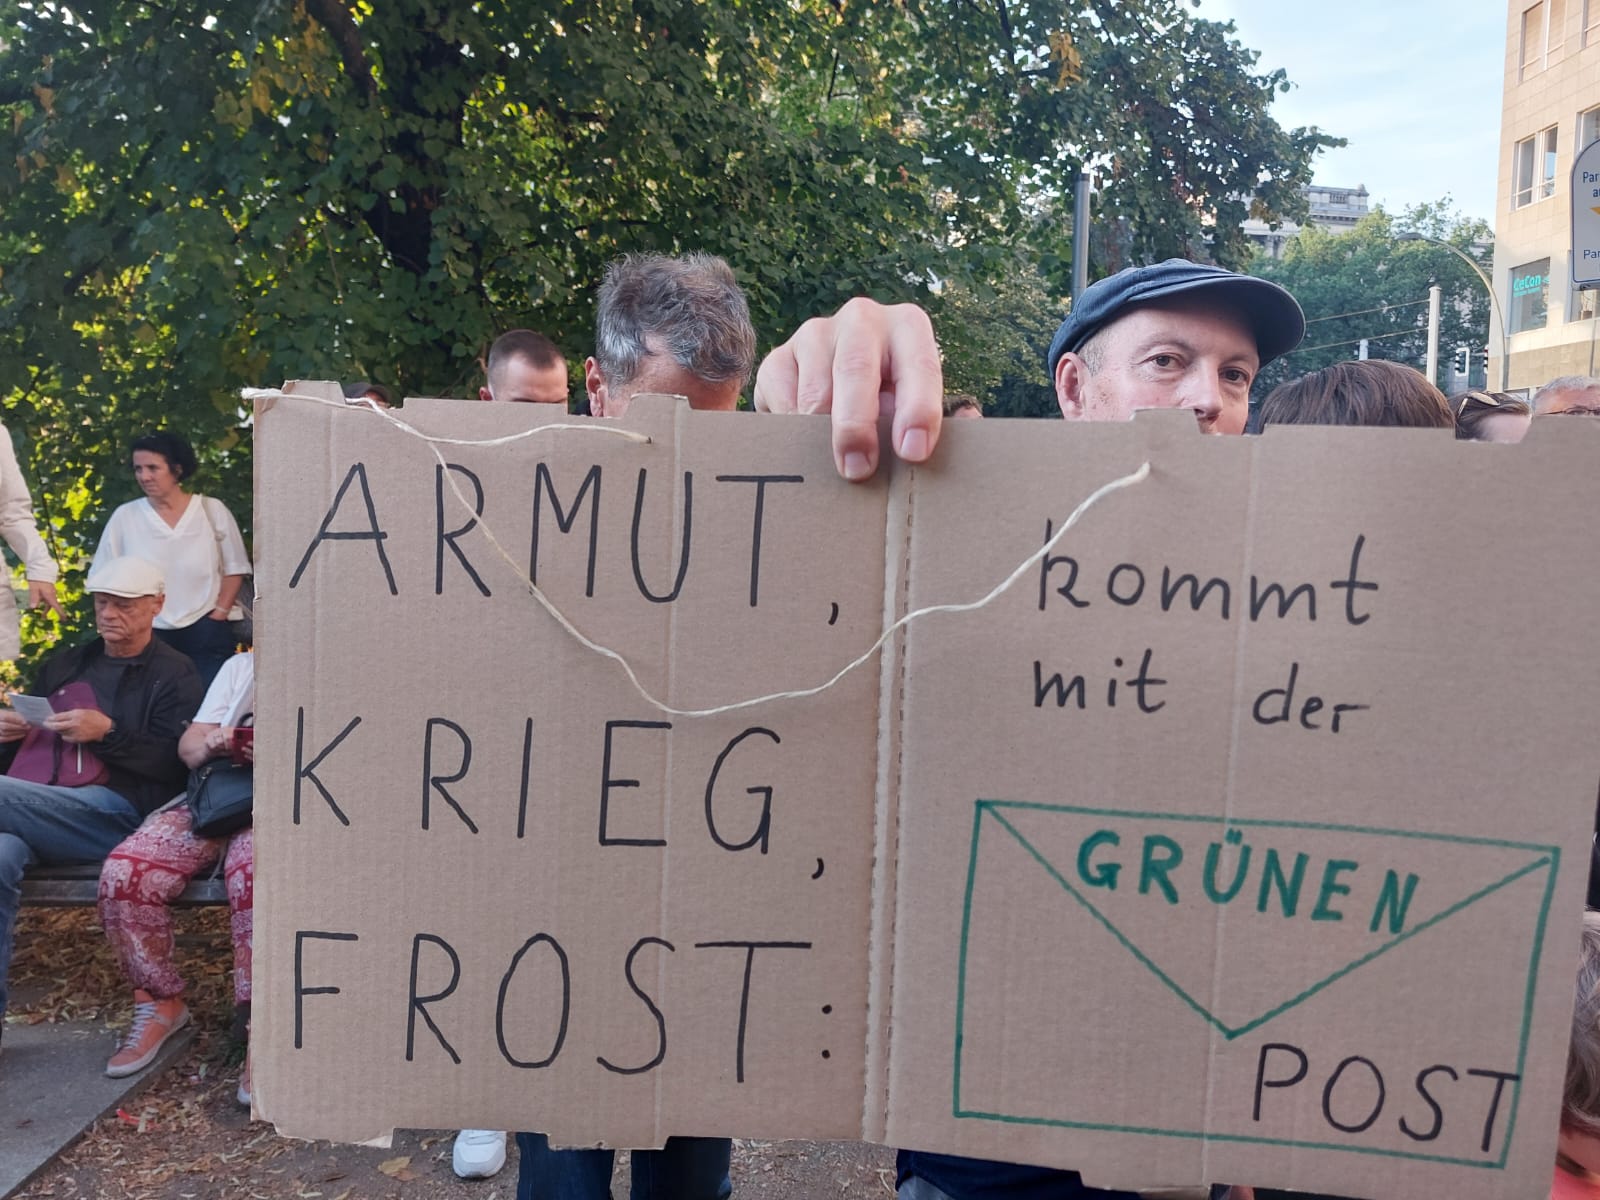 ARMUT,
KRIEG,
FROST:
kommt
mit der
GRÜNEN
POST
CeCon